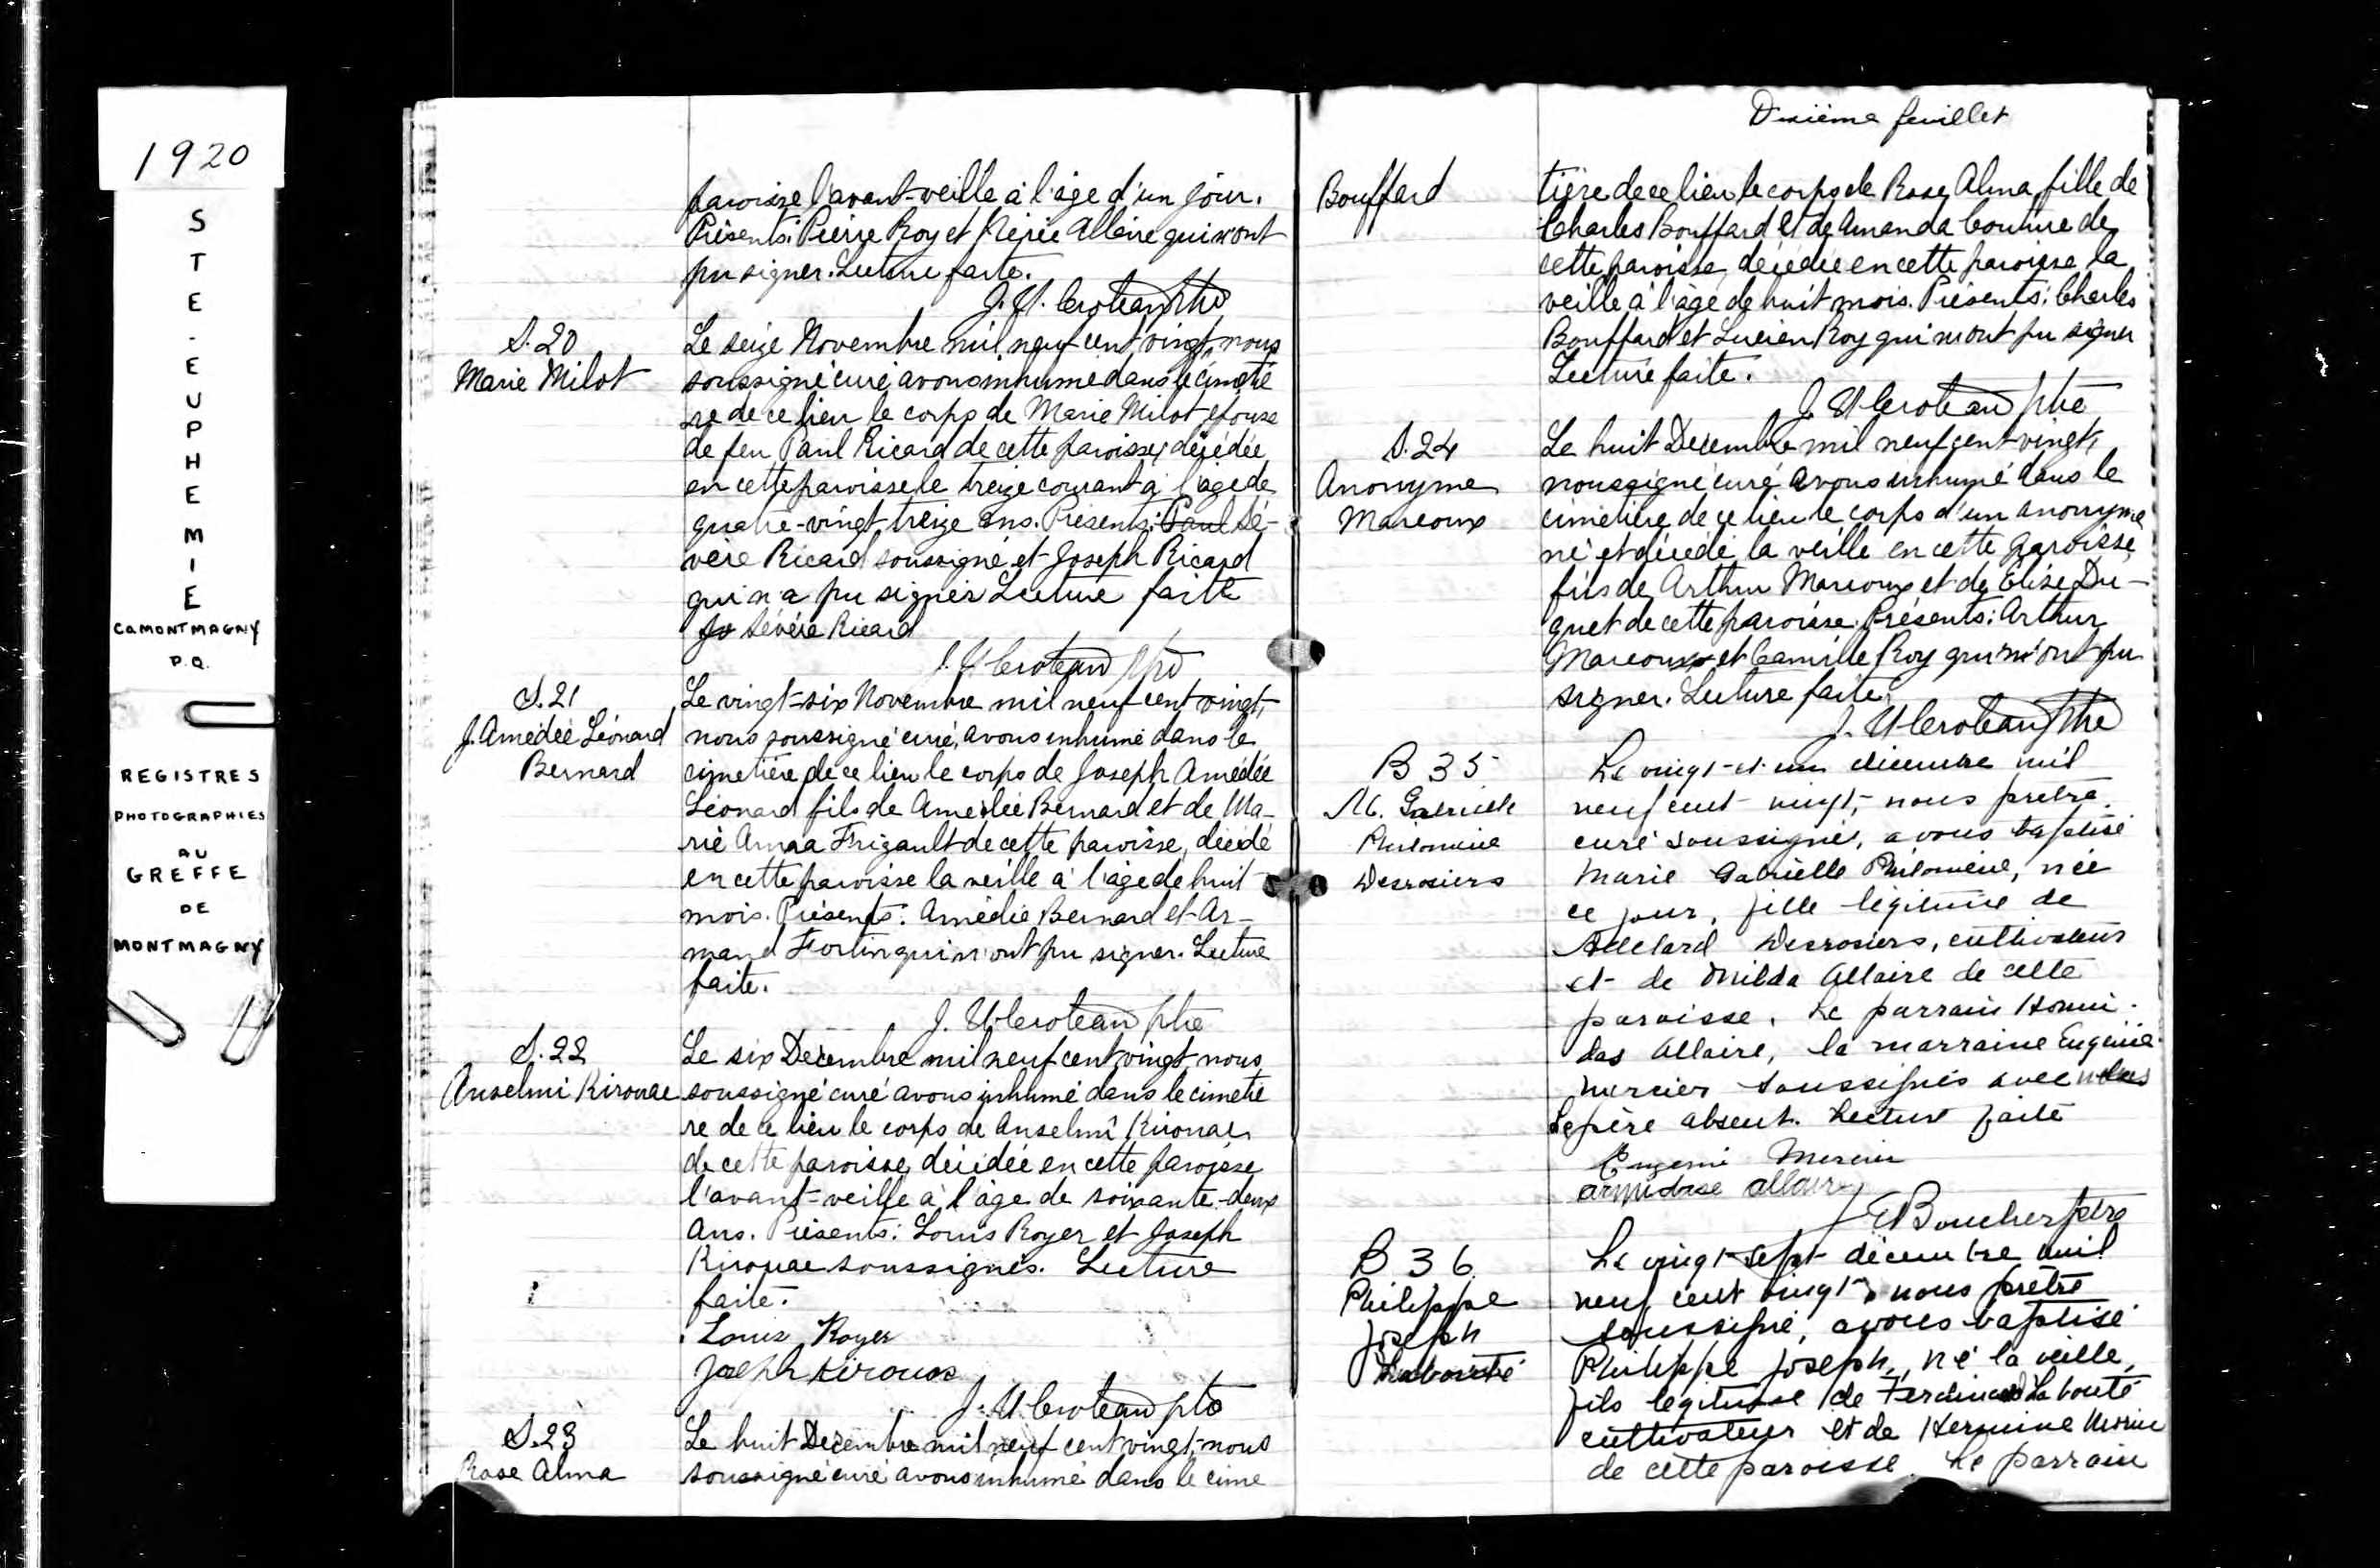 1920
STE-EUPHEMIE
Co MONTMAGNY
P.Q.
REGISTRES
PHOTOGRAPHIES
AU
GREFFE
DE
MONTMAGNY
paroisse l'avant-veille à l'âge d'un jour.
Présents: Pierre Roy et Allaire qui n'ont
pu signer. Lecture faite.
J. U. Croteau ptre
S. 20
Marie Milot
Le seize Novembre mil neuf cent vingt, nous
soussigné curé avons inhumé dans le cimetiè
re de ce lieu le corps de Marie Milot épouse
de feu Paul Ricard de cette paroisse, décédée
en cette paroisse le treize courant à l'âge de
quatre-vingt treize ans. Présents: Paul Sé-
vère Ricard soussigné et Joseph Ricard
qui n'a pu signer Lecture faite
Jo Sévére Ricard
J. U. Croteau ptre
S. 21
J. Amédée Léonard
Bernard
Le vingt-six Novembre mil neuf cent vingt,
nous soussigné curé, avons inhumé dans le
cimetière de ce lieu le corps de Joseph Amédée
Léonard fils de Amédée Bernard et de Ma-
rie Anna Frigault de cette paroisse, décédé
en cette paroisse la veille à l'âge de huit
mois. Présents: Amédée Bernard et Ar-
mand Fortin qui n'ont pu signer. Lecture
faite.
J. U. Croteau ptre
S. 22
Anselmi Kirouac
Le six Décembre mil neuf cent vingt, nous
soussigné curé avons inhumé dans le cimetiè
re de ce lieu le corps de Anselmi Kirouac
de cette paroisse, décédée en cette paroisse
l'avant-veille à l'âge de soixante-deux
ans. Présents: Louis Royer et Joseph
Kirouac soussignés. Lecture
faite.
Louis Royer
Joseph Kirouac
J. U. Croteau ptre
S. 23
Rose Alma
Le huit Décembre mil neuf cent vingt, nous
soussigné curé avons inhumé dans le cime
Dixième feuillet
Bouffard
tière de ce lieu le corps de Rose Alma fille de
Charles Bouffard et de Amanda Couture de
cette paroisse, décédée en cette paroisse la
veille à l'âge de huit mois. Présents: Charles
Bouffard et Lucien Roy qui n'ont pu signer
Lecture faite.
J. U. Croteau ptre
S. 24
Anonyme
Marcoux
Le huit Décembre mil neuf cent vingt,
noussigné curé avons inhumé dans le
cimetière de ce lieu le corps d'un anonyme
né et décédé la veille en cette paroisse,
fils de Arthur Marcoux et de Elise Du-
quet de cette paroisse. Présents: Arthur
Marcoux et Camille Roy qui n'ont pu
signer. Lecture faite.
J. U. Croteau Ptre
B 35
M. Gabrielle
Philomène
Desrosiers
Le vingt-et-un décembre mil
neuf cent vingt, nous prêtre
curé soussigné, avons baptisé
Marie Gabrielle Philomène, née
ce jour, fille légitime de
Adélard Desrosiers, cultivateur
et de Exilda Allaire de cette
paroisse. Le parrain Hormi-
das Allaire, la marraine Eugénie
Mercier soussignés avec nous
Le père absent. Lecture faite
Eugenie Mercier
armidase allaire
E Boucher ptre
B 36
Philippe
Joseph
Labonté
Le vingt-sept décembre mil
neuf cent vingt, nous prêtre
soussigné, avons baptisé
Philippe Joseph, né la veille,
fils légitime de Ferdinand Labonté
cultivateur et de Hermine Morin
de cette paroisse. Le parrain